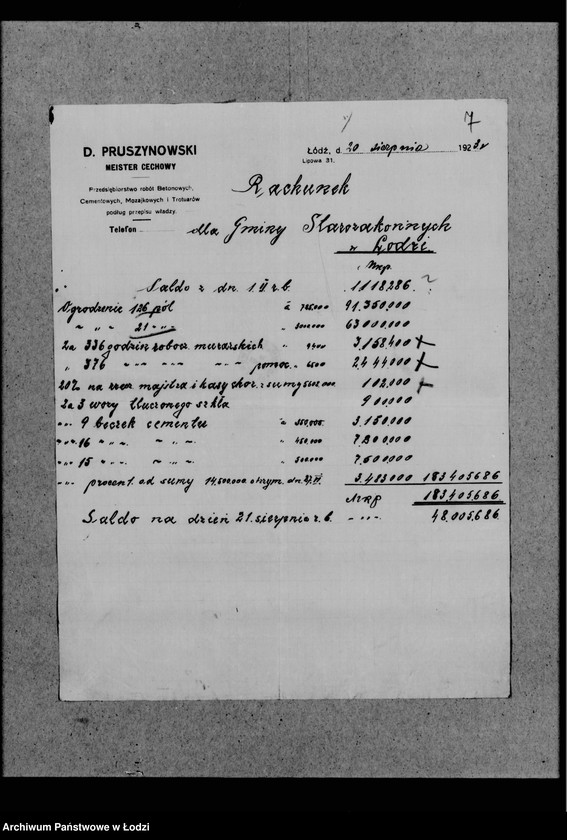 7
D. PRUSZYNOWSKI
MEISTER CECHOWY
Przedsiębiorstwo robót Betonowych,
Cementowych, Mozajkowych i Trotuarów
podług przepisu władzy.
Telefon
Łódź, d 20 sierpnia 1923 r
Lipowa 31.
Rachunek
dla Gminy Starozakonnych
w Łodzi
Mkp.
Saldo z dn. 1.VI r.b. 1118,286. ?
Ogrodzenie 126 pól à 725.000 91.350.000
" " 21 " " " 3000000 63000.000
Za 336 godzin robocz. murarskich " 9400 3.158.400
" 376 " " " " pomoc. " 6500 2.444.000
20% na rzecz majstra i kasy chor. z sumy 102.000
Za 3 wory tłuczonego szkła 900.000
" " 9 beczek cementu à 350,000. 3.150.000
" " 16 " " " " 450.000 7.200.000
" " 15 " " " " 500000 7.500000
" " procent. od sumy 14.500.000 3.483000 183405686
Mkp 183405686
Saldo na dzień 21. sierpnia r.b. " " 48.005.686.
Archiwum Państwowe w Łodzi